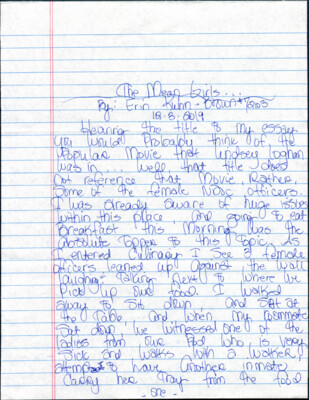 The Mean Girls...
By: Erin Kuhn-Brown
12-8-2019
Hearing the title to my essay
you would probably think of the
Popular Movie that Lindsey Lohan
was in... well that title does
not reference that Movie, Rather,
some of the female NDSC officers.
I was already aware of huge issues
within this place, and going to eat
Breakfast this Morning was the
absolute topper to this topic. As
I entered Culinary I see 3 female
officers leaned up against the wall
laughing talking next to where we
Pick up our food. I walked
away to sit down and sat at
the table and when, my roommate
sat down, we witnessed one of the
ladies from our Pod who is very
sick and walks with a walker
attempt to have another inmate
carry her tray from the food
- one -